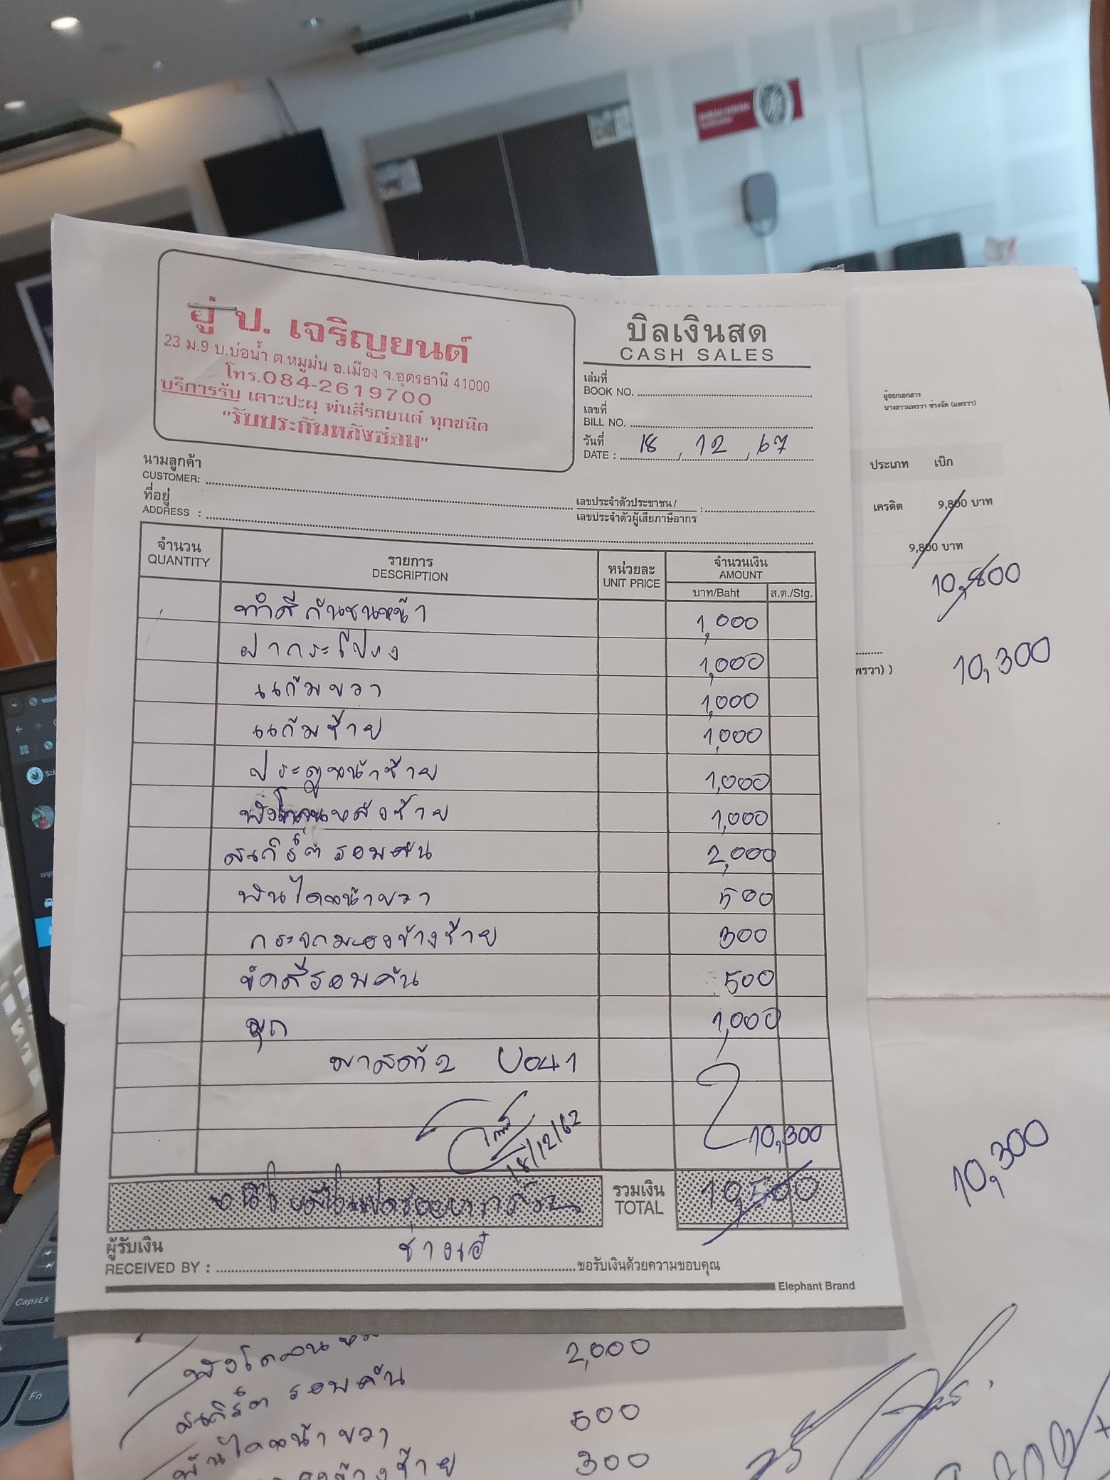 อู่ ป. เจริญยนต์
23 ม.9 บ.บ่อน้ำ ต.หมูม่น อ.เมือง จ.อุดรธานี 41000
โทร.084-2619700
บริการรับ เคาะปะผุ พ่นสีรถยนต์ ทุกชนิด
"รับประกันหลังซ่อม"
บิลเงินสด
CASH SALES
เล่มที่
BOOK NO.
เลขที่
BILL NO.
วันที่
DATE : 18 , 12 , 67
นามลูกค้า
CUSTOMER:
ที่อยู่
ADDRESS :
เลขประจำตัวประชาชน /
เลขประจำตัวผู้เสียภาษีอากร :
จำนวน รายการ หน่วยละ จำนวนเงิน
QUANTITY DESCRIPTION UNIT PRICE AMOUNT
บาท/Baht ส.ต./Stg.
ทำสีกันชนหน้า 1,000
ฝากระโปรง 1,000
แก้มขวา 1,000
แก้มซ้าย 1,000
ประตูหน้าซ้าย 1,000
หลังซ้าย 1,000
สเกิร์ต รอบคัน 2,000
หน้าขวา 500
กระจกมองข้างซ้าย 300
ขัดสีรอบคัน 500
1,000
มาสด้า 2
18/12/67
10,300
รวมเงิน
TOTAL 10,500
ช่างเอ๋
ผู้รับเงิน
RECEIVED BY : ขอรับเงินด้วยความขอบคุณ
Elephant Brand
ผู้ออกเอกสาร
ประเภท เบิก
เครดิต 9,800 บาท
9,800 บาท
10,800
10,300
10,300
2,000
สเกิร์ต รอบคัน 500
หน้าขวา 300
CapsLk
Fn